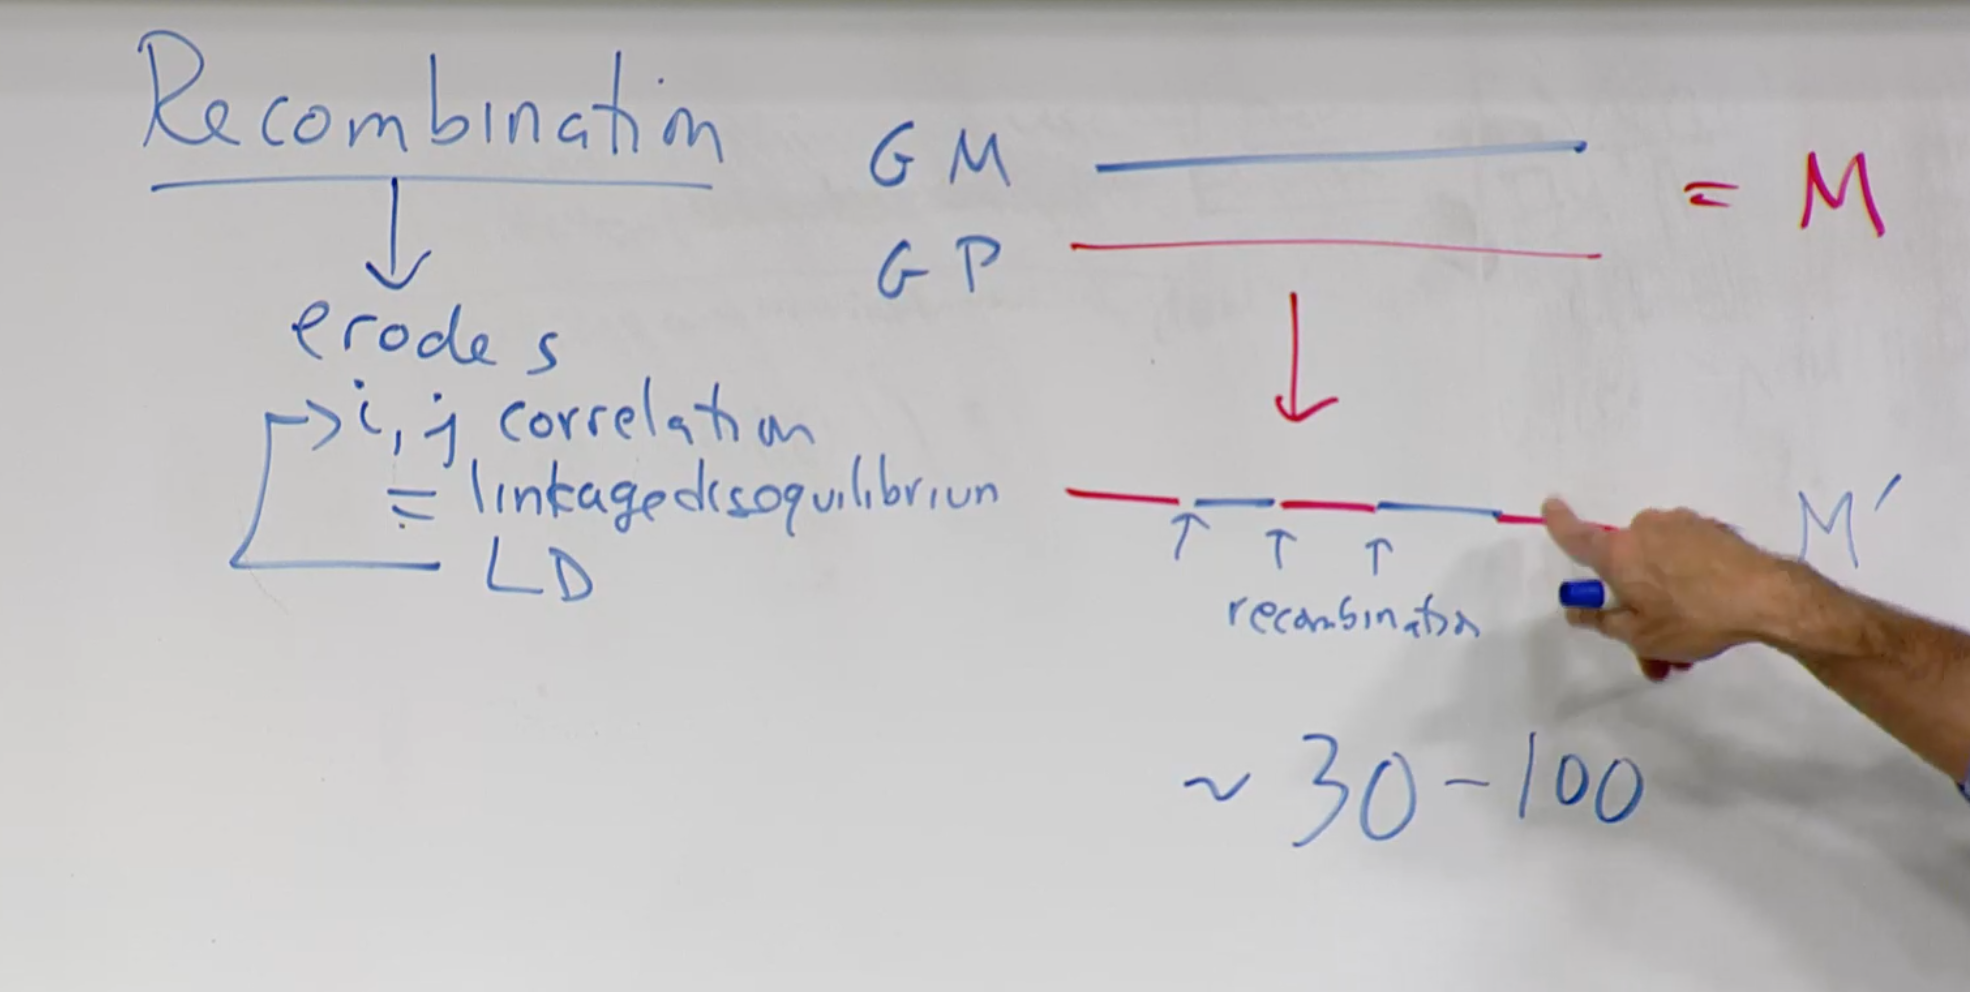 Recombination
erodes
i, j correlation
= linkagedisoquilibriun
LD
GM
GP
= M
M'
recombination
~ 30-100